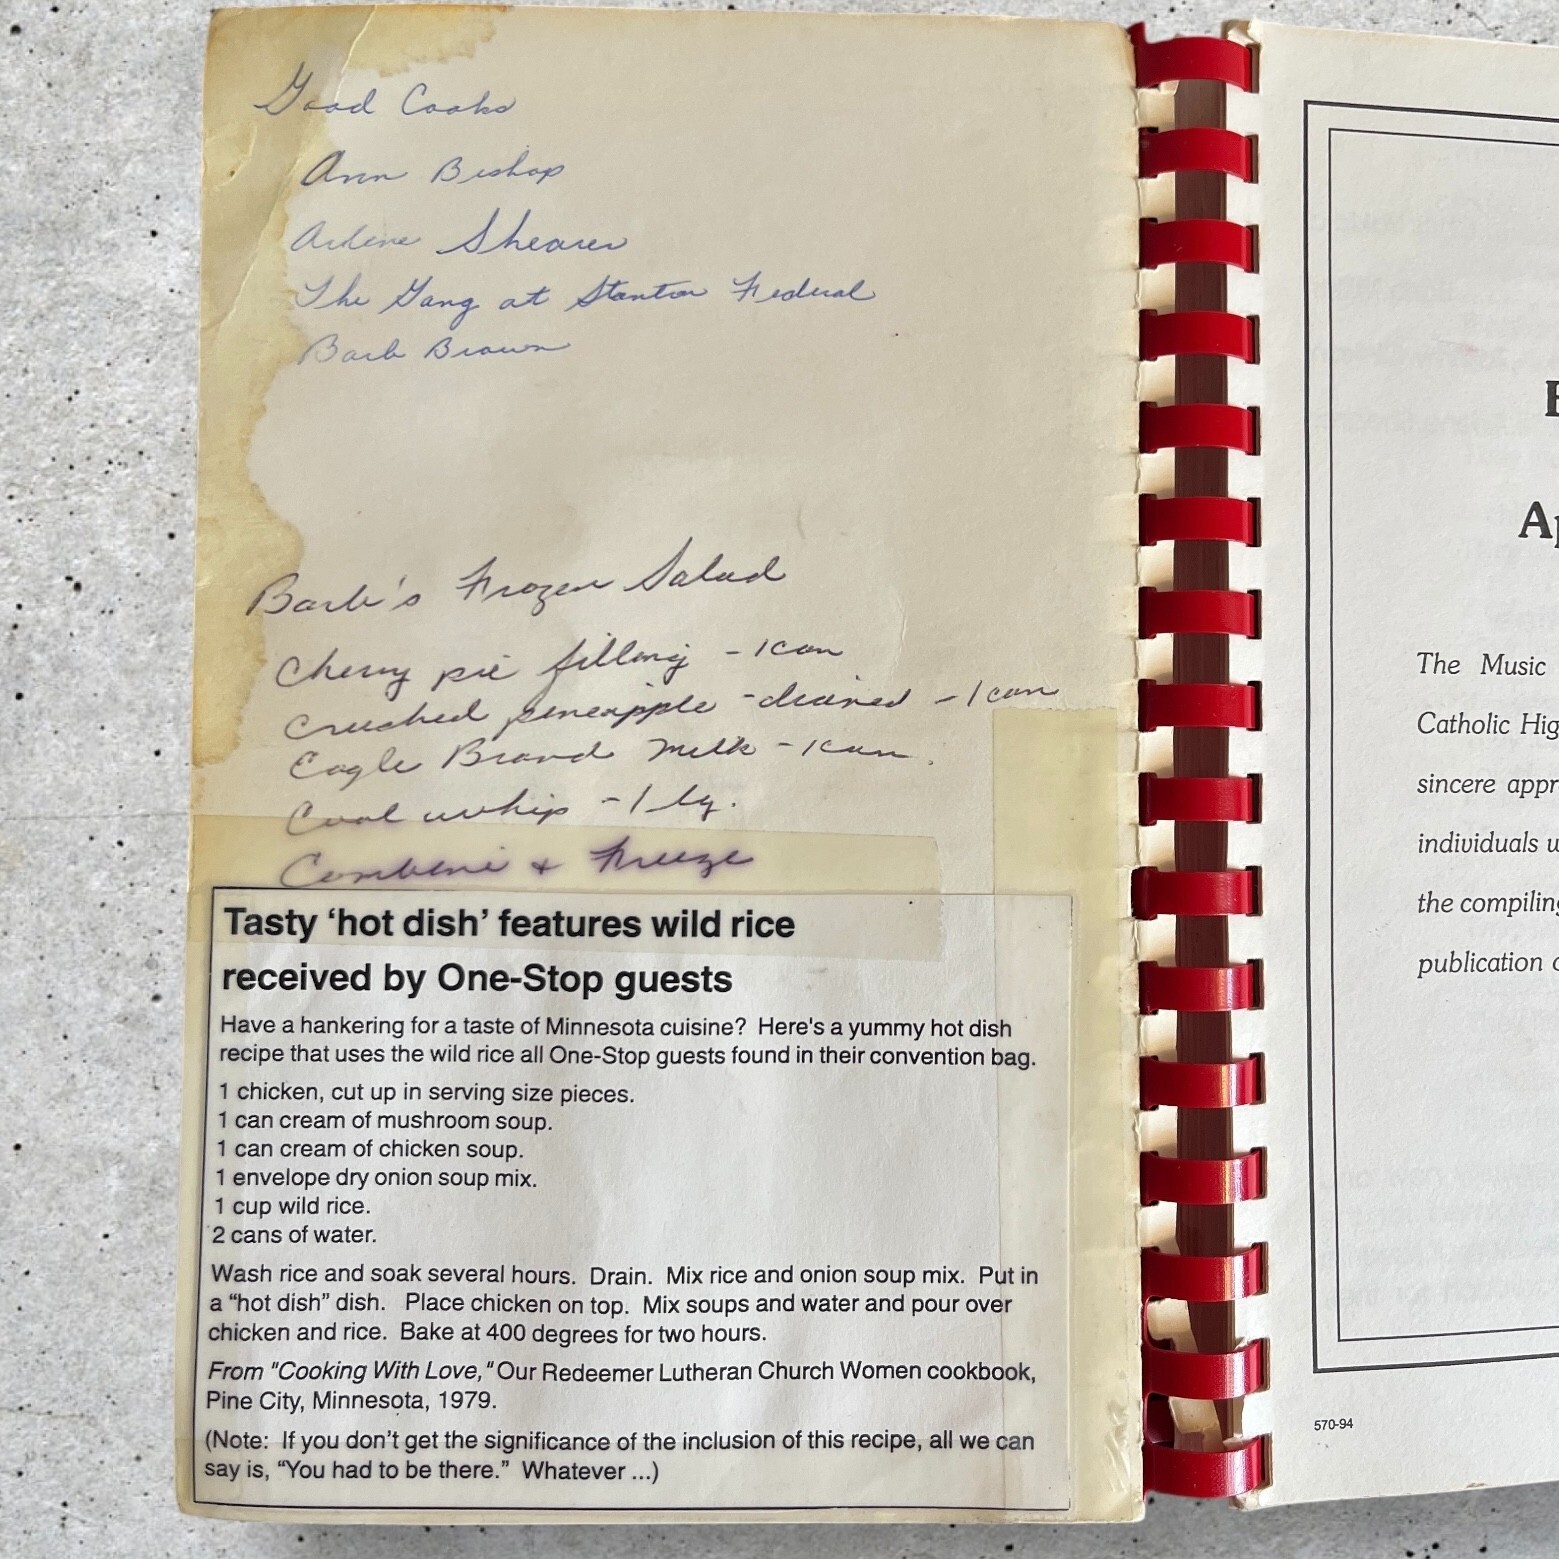 Good Cooks
Ann Bishop
Arlene Shearer
The Gang at Stanton Federal
Barb Brown
Barb's Frozen Salad
Cherry pie filling - 1 can
Crushed pineapple - drained - 1 can
Eagle Brand Milk - 1 can.
Cool whip - 1 lg.
Combine + Freeze
Tasty ‘hot dish’ features wild rice
received by One-Stop guests
Have a hankering for a taste of Minnesota cuisine? Here's a yummy hot dish
recipe that uses the wild rice all One-Stop guests found in their convention bag.
1 chicken, cut up in serving size pieces.
1 can cream of mushroom soup.
1 can cream of chicken soup.
1 envelope dry onion soup mix.
1 cup wild rice.
2 cans of water.
Wash rice and soak several hours. Drain. Mix rice and onion soup mix. Put in
a “hot dish” dish. Place chicken on top. Mix soups and water and pour over
chicken and rice. Bake at 400 degrees for two hours.
From "Cooking With Love," Our Redeemer Lutheran Church Women cookbook,
Pine City, Minnesota, 1979.
(Note: If you don’t get the significance of the inclusion of this recipe, all we can
say is, “You had to be there.” Whatever ...)
The Music
Catholic Hig
sincere appr
individuals
the compiling
publication
570-94